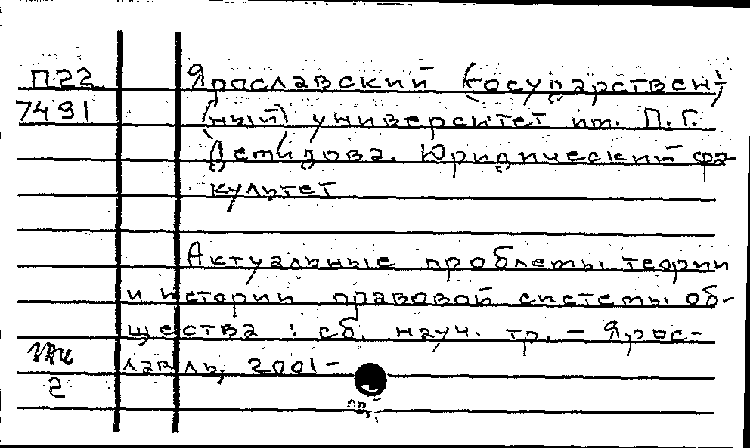 П22 Ярославский (государствен-
7491 (ный) университет им. П. Г.
Демидова. Юридический фа-
культет
Актуальные проблемы теории
и истории правовой системы об-
щества : сб. науч. тр. – Яросс-
лавль, 2001-
2